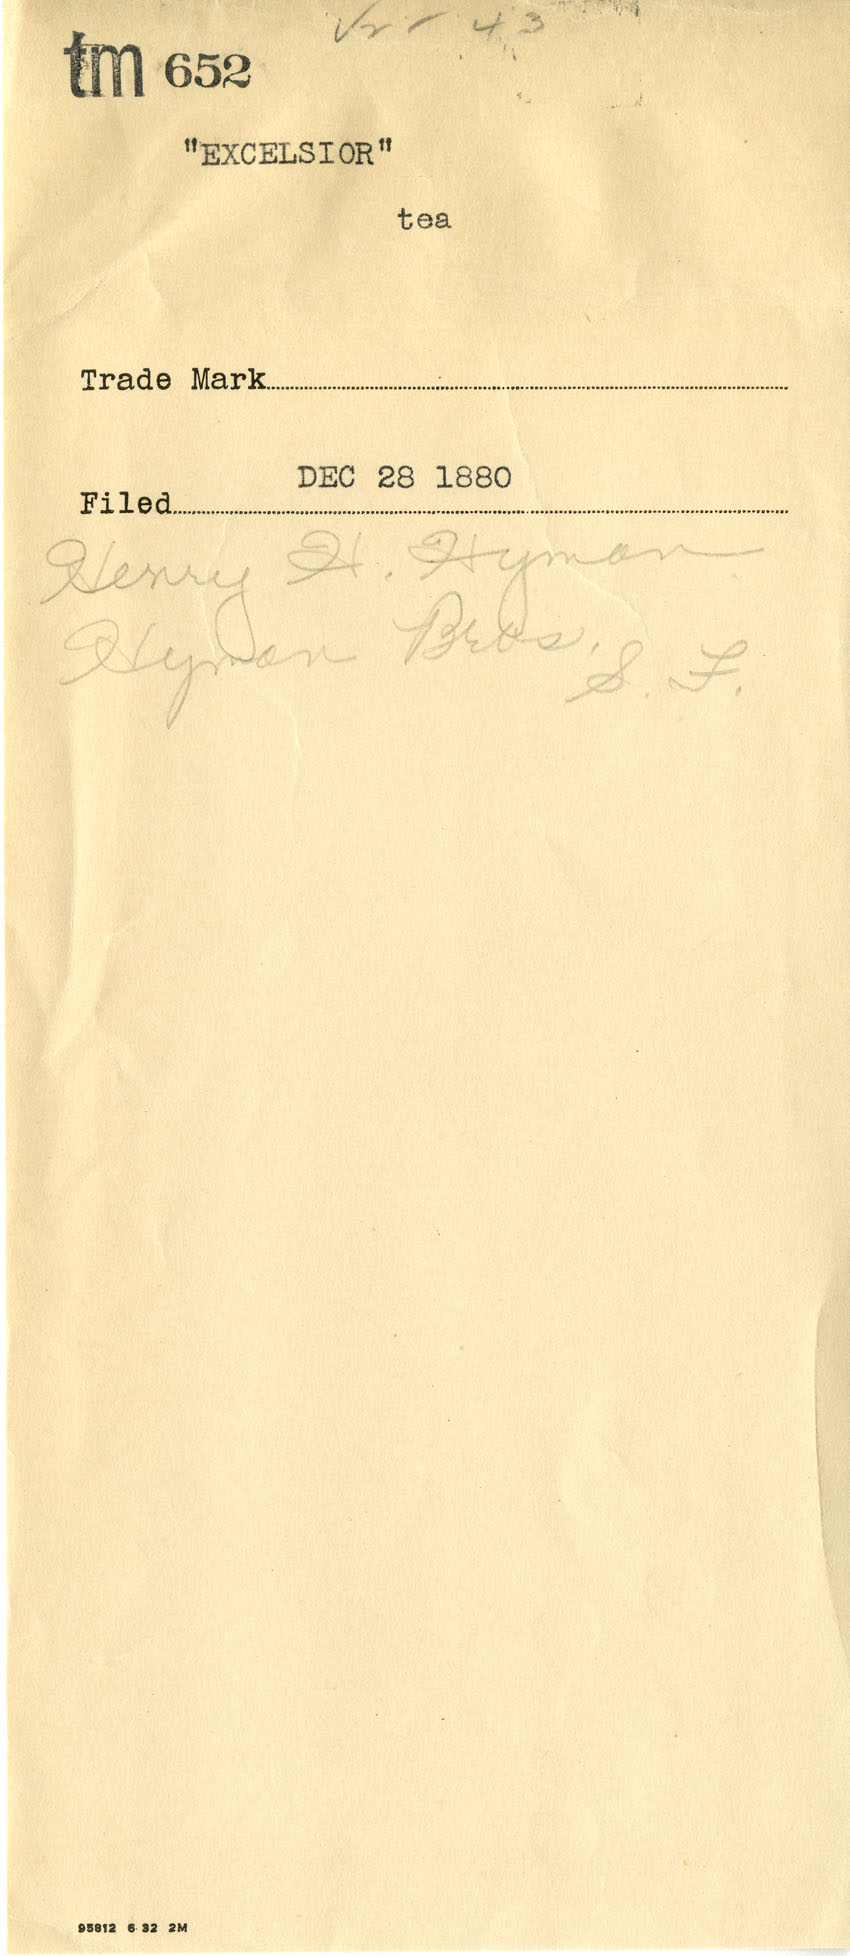 43
tm 652
"EXCELSIOR"
tea
Trade Mark
DEC 28 1880
Filed
Henry H. Hyman
Hyman Bros.
S. F.
95812 6 32 2M